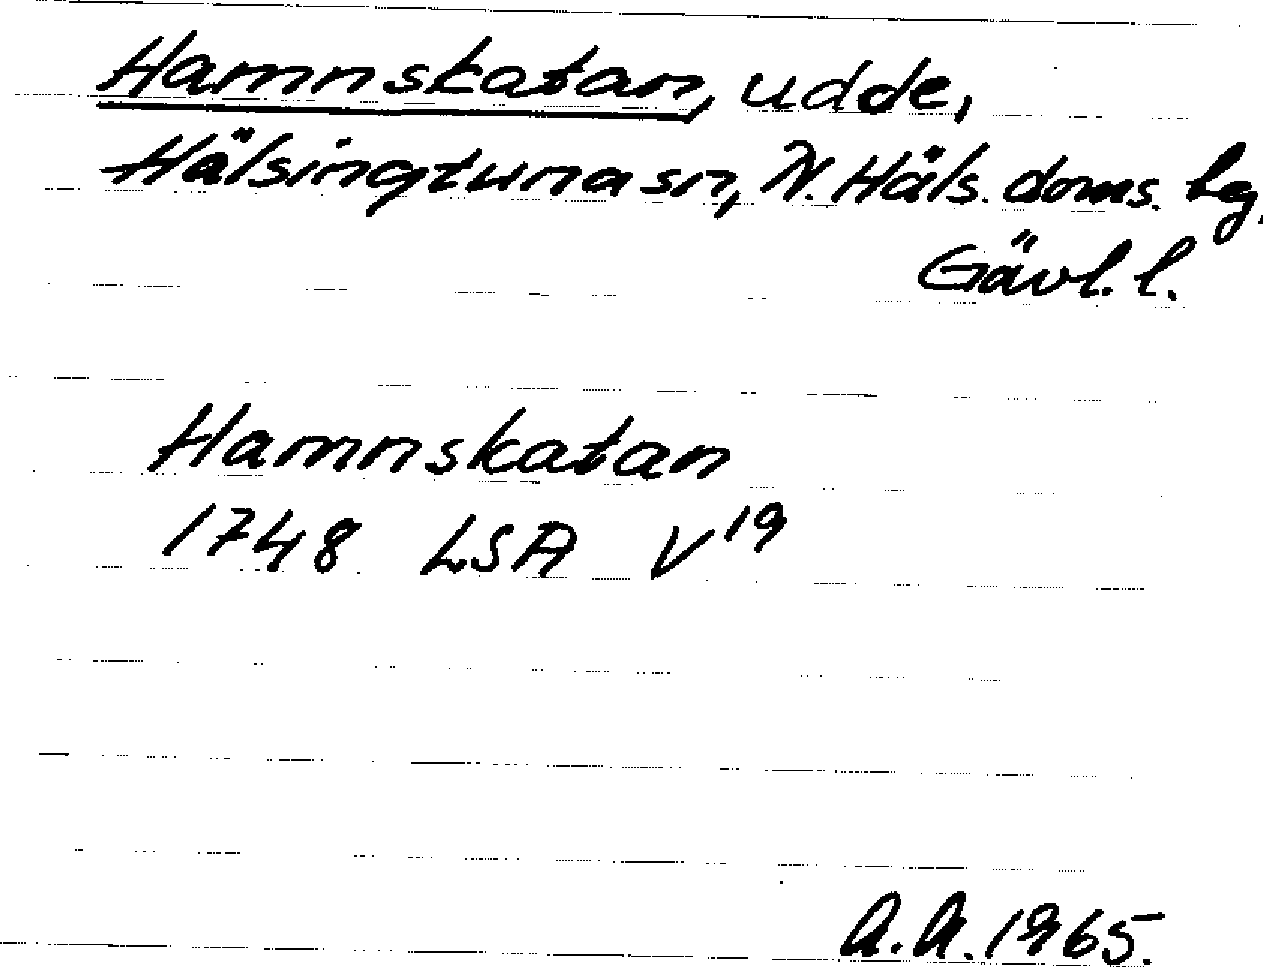 Hamnskatan, udde,
Hälsingtuna sn, N. Häls. doms. hg,
Gävl. l.
Hamnskatan
1748 LSA V¹⁹
A.A. 1965.